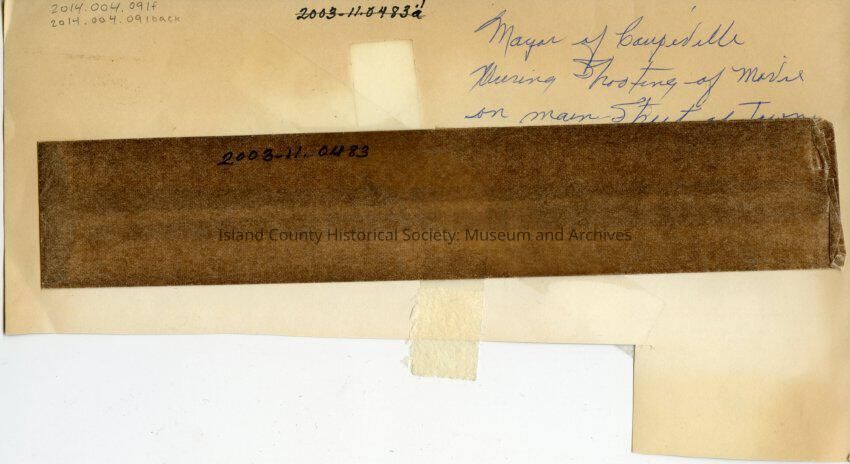 2014.004.091f
2014.004.091back
2003-11.0483a
Mayor of Coupeville
During Shooting of Movie
on main Street as Town
2003-11.0483
Island County Historical Society: Museum and Archives